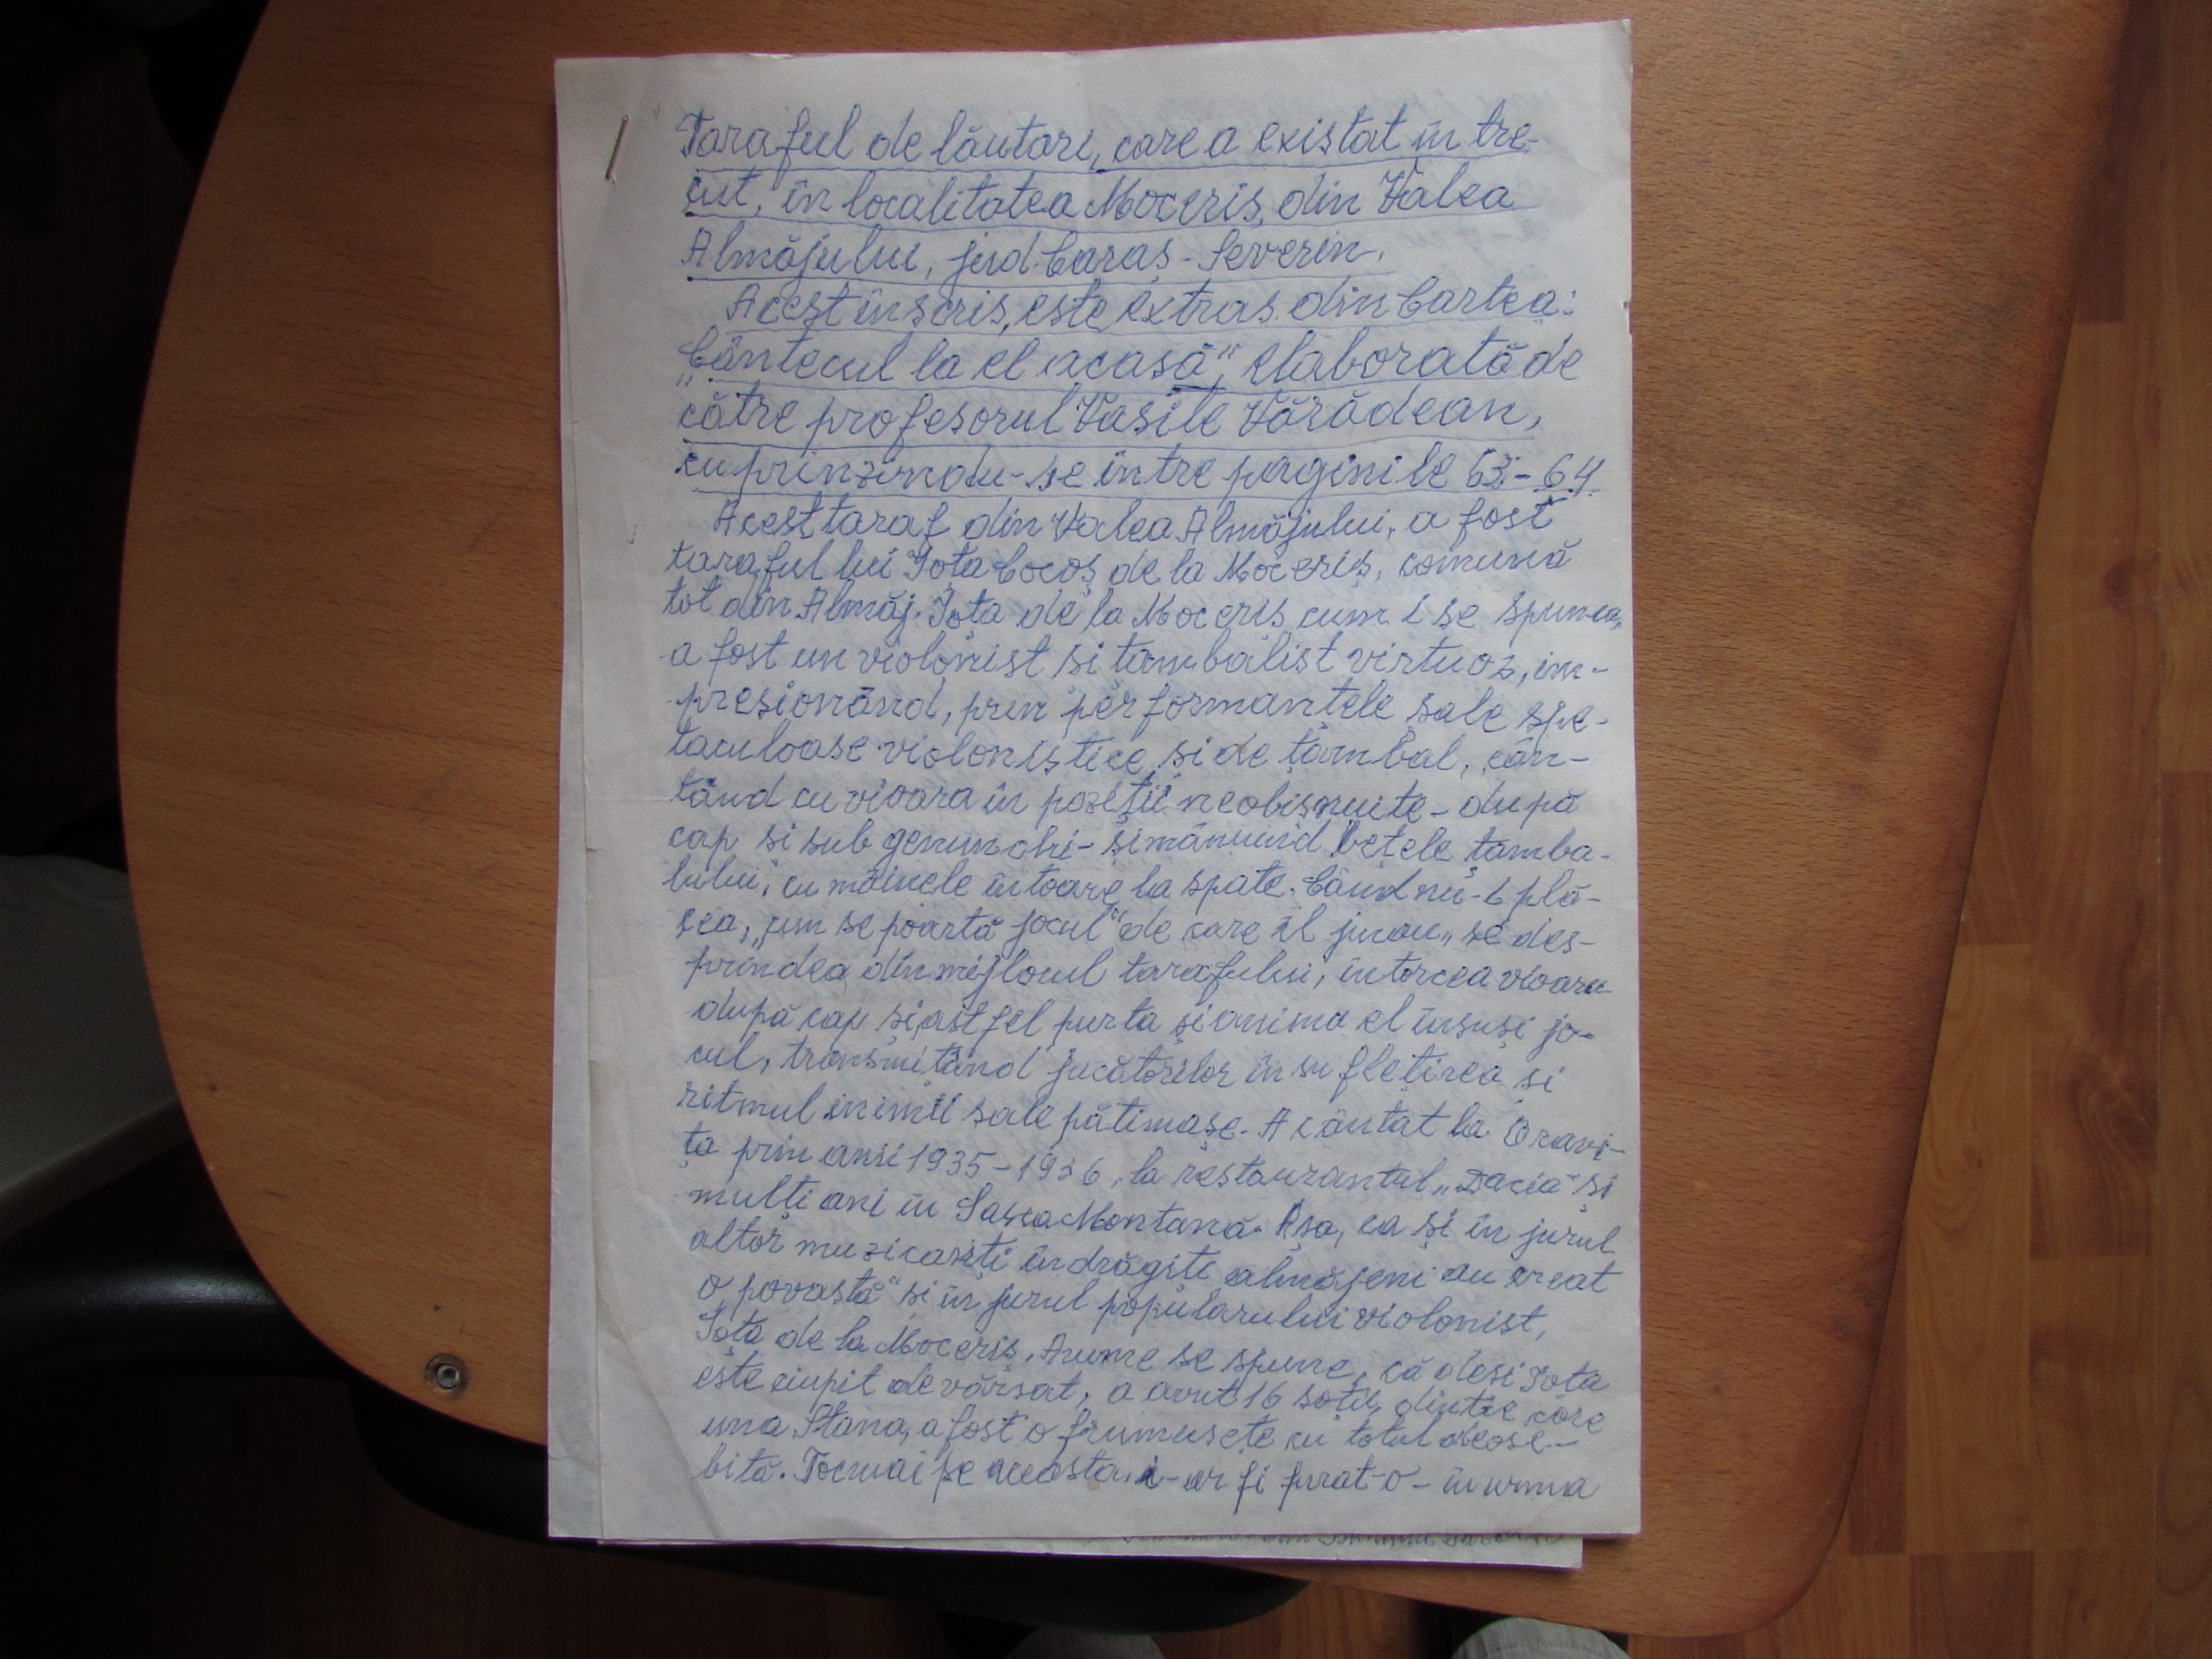 Taraful de lăutari, care a existat în tre-
cut, în localitatea Moceris, din Valea
Almăjului, jud. Caraș-Severin.
Acest înscris, este extras din Cartea:
„Cântecul la el acasă", elaborată de
către profesorul Vasile Vărădean,
cuprinzându-se între paginile 63-64
Acest taraf din Valea Almăjului, a fost
taraful lui Iota Cocoș de la Moceriș, comună
tot din Almăj. Iota de la Moceris cum i se spunea,
a fost un violonist si tambalist virtuoz, im-
presionând, prin performanțele sale spe-
taculoase violonistice și de țambal, cân-
tând cu vioara în poziții neobișnuite - după
cap si sub genunchi - și mânuind bețele tamba-
lului, cu mâinele întoarse la spate. Când nu-i plă-
cea, „cum se poartă jocul" de care îl jucau, se des-
prindea din mijlocul tarafului, întorcea vioara
după cap și astfel purta și anima el însuși jo-
cul, transmițând jucătorilor însuflețirea și
ritmul inimii sale pătimașe. A cântat la Oravi-
ța prin anii 1935-1936, la restaurantul „Dacia" și
mulți ani în Sasca Montană. Așa, ca și în jurul
altor muzicanți îndrăgiți almăjeni au creat
o povastă" si în jurul popularului violonist,
Iota de la Moceris. Anume se spune, că desi Iota
este ciupit de vărsat, a avut 16 soții, dintre care
una Stana, a fost o frumusețe cu totul deose-
bită. Tocmai pe aceasta, i-ar fi furat-o - în urma